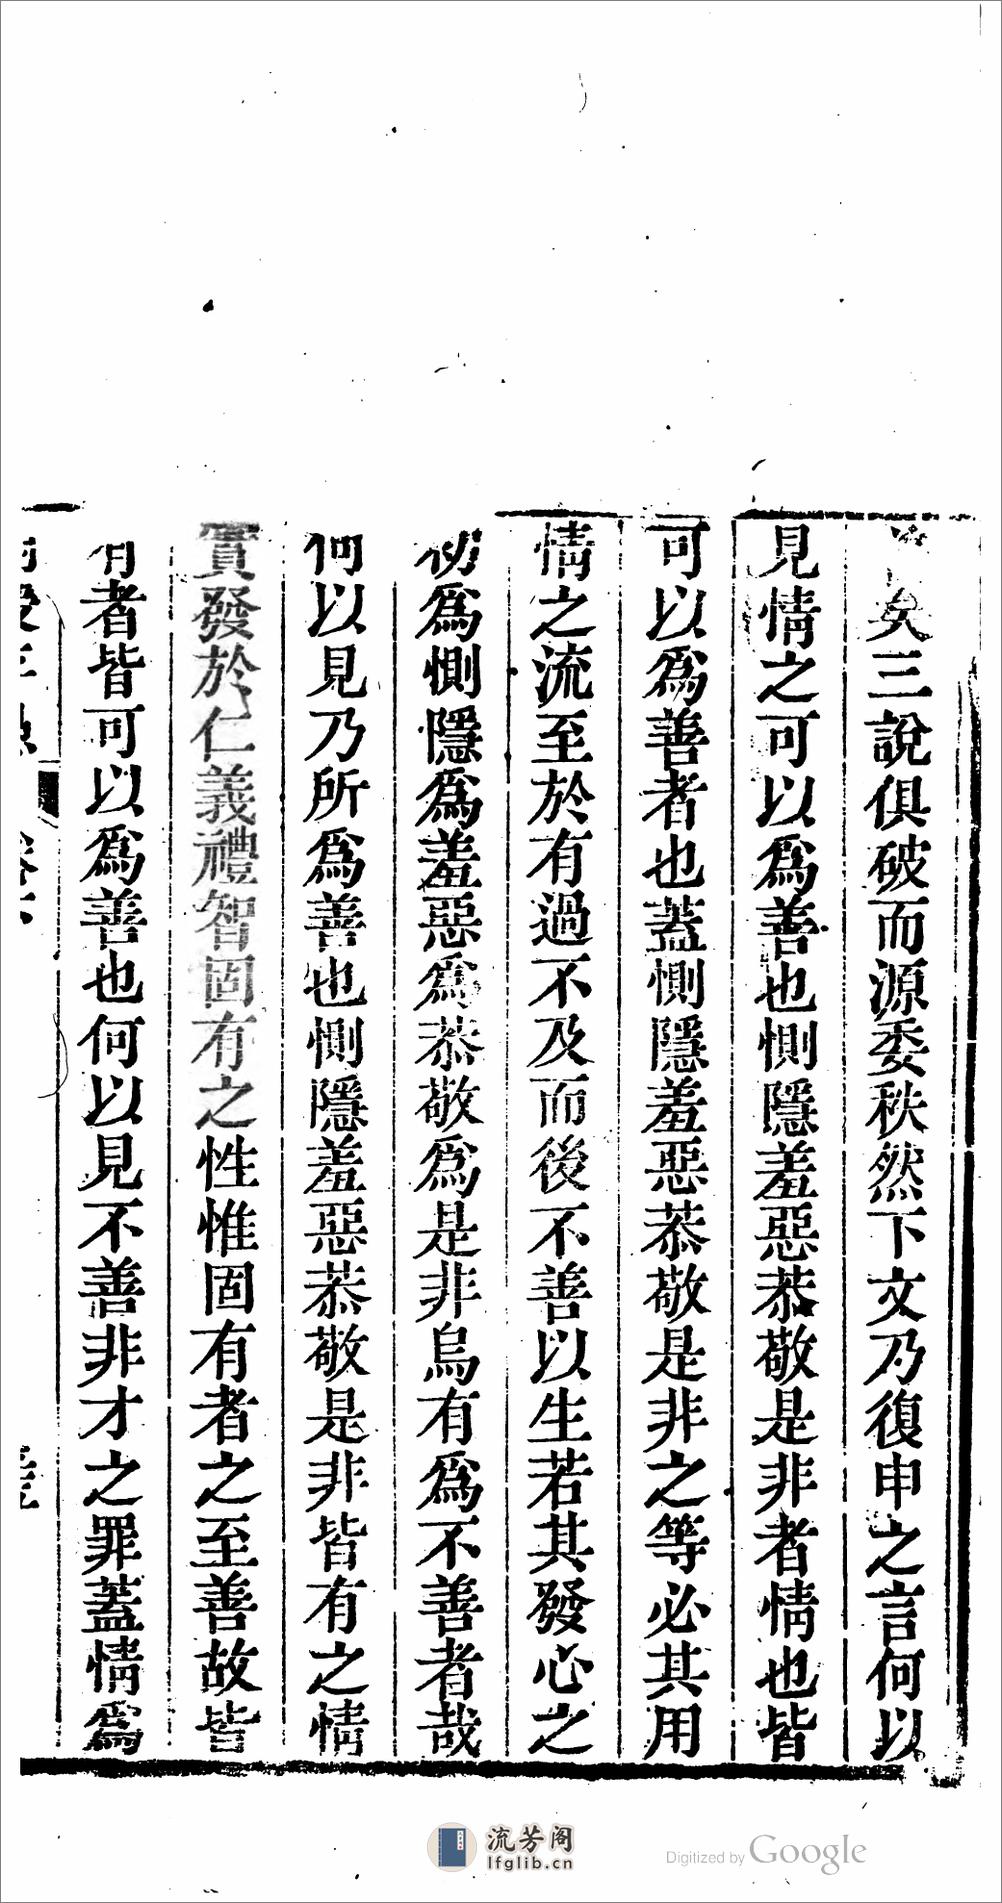 矣三說俱破而源委秩然下文乃復申之言何以
見情之可以為善也惻隱羞惡恭敬是非者情也皆
可以為善者也蓋惻隱羞惡恭敬是非之等必其用
情之流至於有過不及而後不善以生若其發心之
初為惻隱為羞惡為恭敬為是非烏有為不善者哉
何以見乃所為善也惻隱羞惡恭敬是非皆有之情
實發於仁義禮智固有之性惟固有者之至善故皆
有者皆可以為善也何以見不善非才之罪蓋情為
流芳阁
lfglib.cn
Digitized by Google